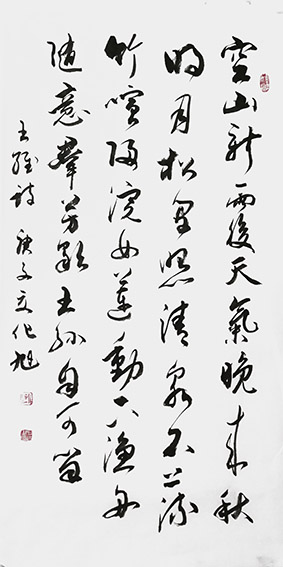 空山新雨後天氣晚来秋
明月松間照清泉石上流
竹喧歸浣女蓮動下漁舟
随意羣芳歇王孫自可留
王維詩 庚子 化旭